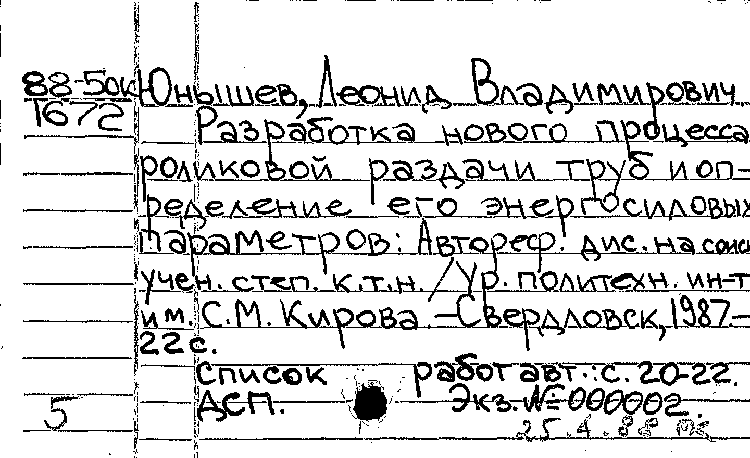 88-50к Юнышев, Леонид Владимирович.
1672 Разработка нового процесса
роликовой раздачи труб и оп-
ределение его энергосиловых
параметров: Автореф. дис. на соиск
учен. степ. к.т.н. / Ур. политехн. ин-т
им. С.М. Кирова. – Свердловск, 1987. –
22 с.
Список работ авт.: с. 20-22.
5 ДСП. Экз. № 000002.
25.4.88